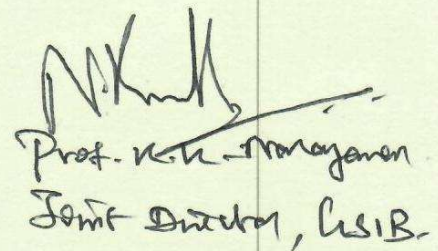 Prof. K.K. Narayanan
Joint Director, CSIB.